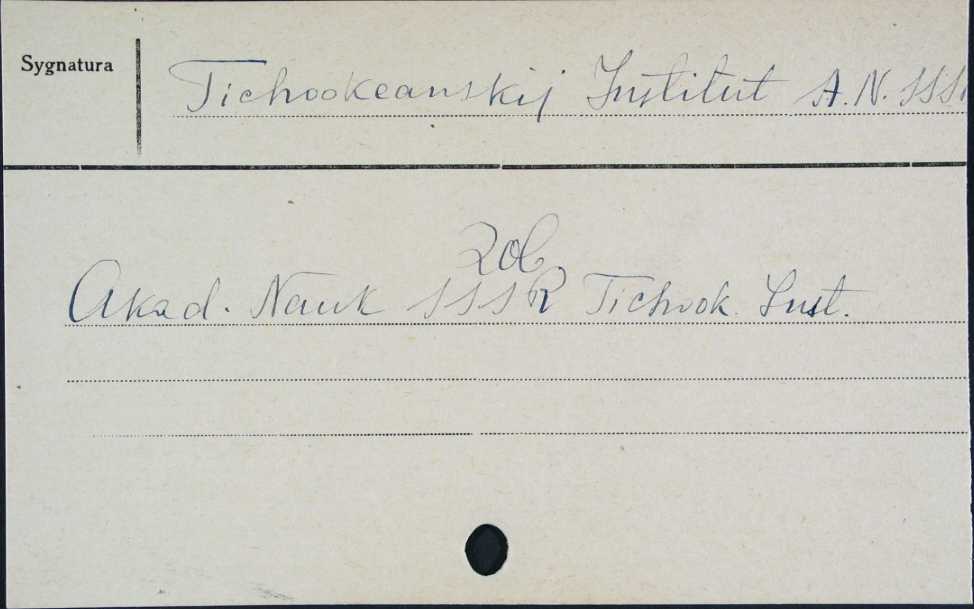 Sygnatura
Tichookeanskij Institut A.N. SSSR
Zob
Akad. Nauk SSSR Tichook. Inst.